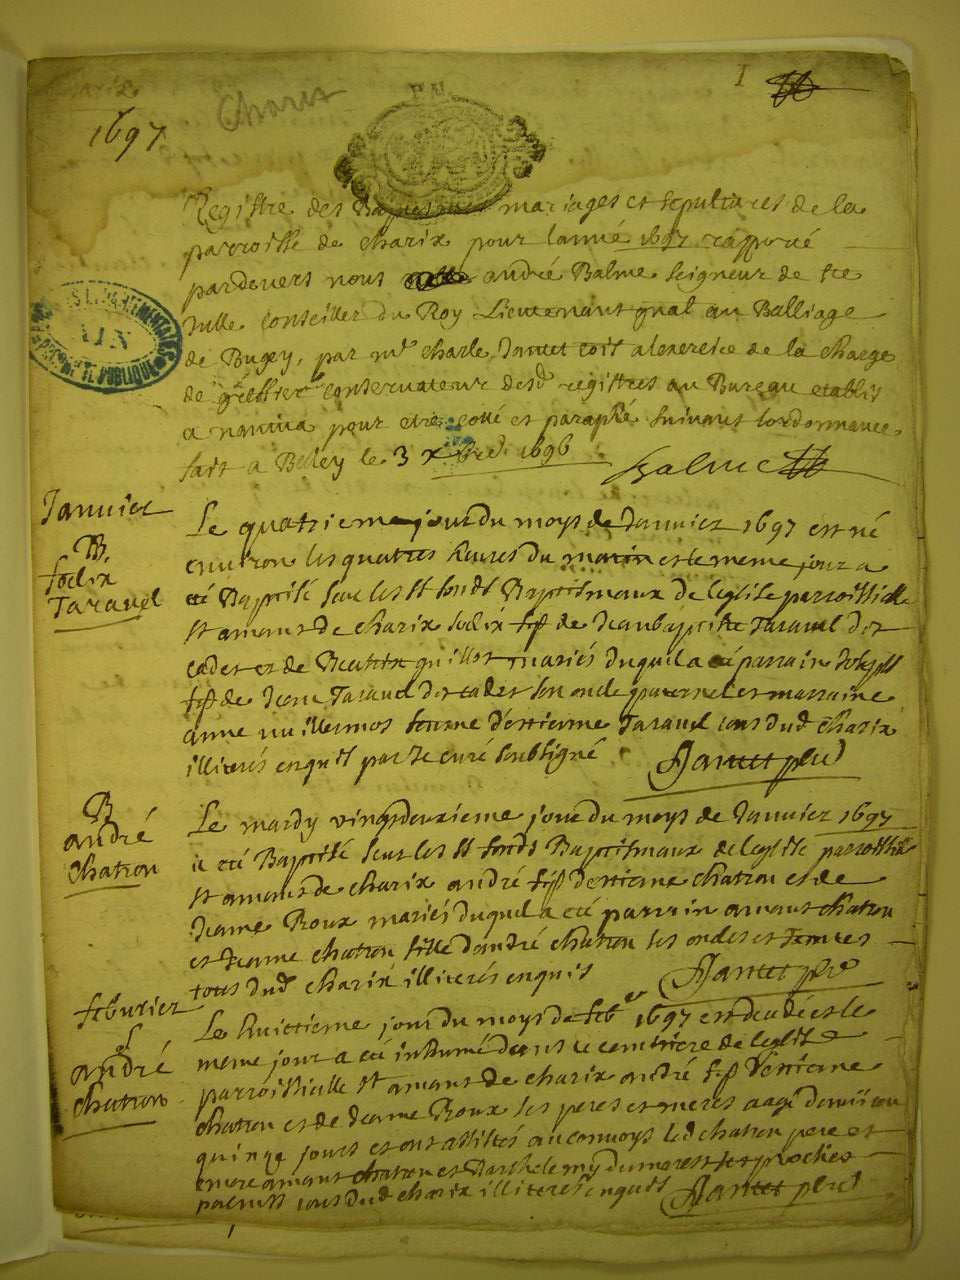 I
1697
Charix
Registre des Baptesmes mariages et sepultures de la
parroisse de charix pour lanné 1697 rapporté
pardevers nous andré Balme seigneur de ste
Jullie Conseiller du Roy Lieutenant gnal au Balliage
de Bugey, par mr charle Jantet a lexersice de la charge
de greffier conservateur desd registres au Bureau etably
a nantua pour etre cotté et paraphé suivant lordonnance
fait a Belley le 3 xbre 1696 Balme
Janvier
B
foelix
Taravel
Le quatrieme jour du moys de Janvier 1697 est né
environ les quatres heures du matin et le meme jour a
eté Baptisé sur les st fonds Baptismaux de leglise parroissialle
st amant de charix foelix fs de Jeanbaptiste Taravel dit
cadet et de Beatrix quillot mariés duquil a eté parrain Joseph
fs de Jean Taravel dit cadet son oncle paternel et marraine
anne vuillermos femme d'estienne Taravel tous dud charix
illiterés enquis par le curé soubsigné Jantet pbre
B
andré
Chatron
Le mardy vingtdeuxieme jour du moys de Janvier 1697
a eté Baptisé sur les st fonds Baptismaux de leglise parroissialle
st amant de charix andré fs d'estienne chatron et de
Jeanne Roux mariés duquel a eté parrin amant chatron
et Jeanne chatron fille d'andré chatron ses oncles et tantes
tous dud charix illiterés enquis Jantet pbre
febvrier
andré
Chatron
Le huictieme jour du moys de feber 1697 est decedé et le
meme jour a eté inhumé dans le cemitiere de leglise
parroissialle st amant de charix andré fs d'estienne
chatron et de Jeanne Roux ses peres et meres aagé d'environ
quinze jours et ont assistés au convoys led chatron pere et
encore amant chatron et Barthelemy dumarest ses proches
parents tous dud charix illiterés enquis Jantet pbre